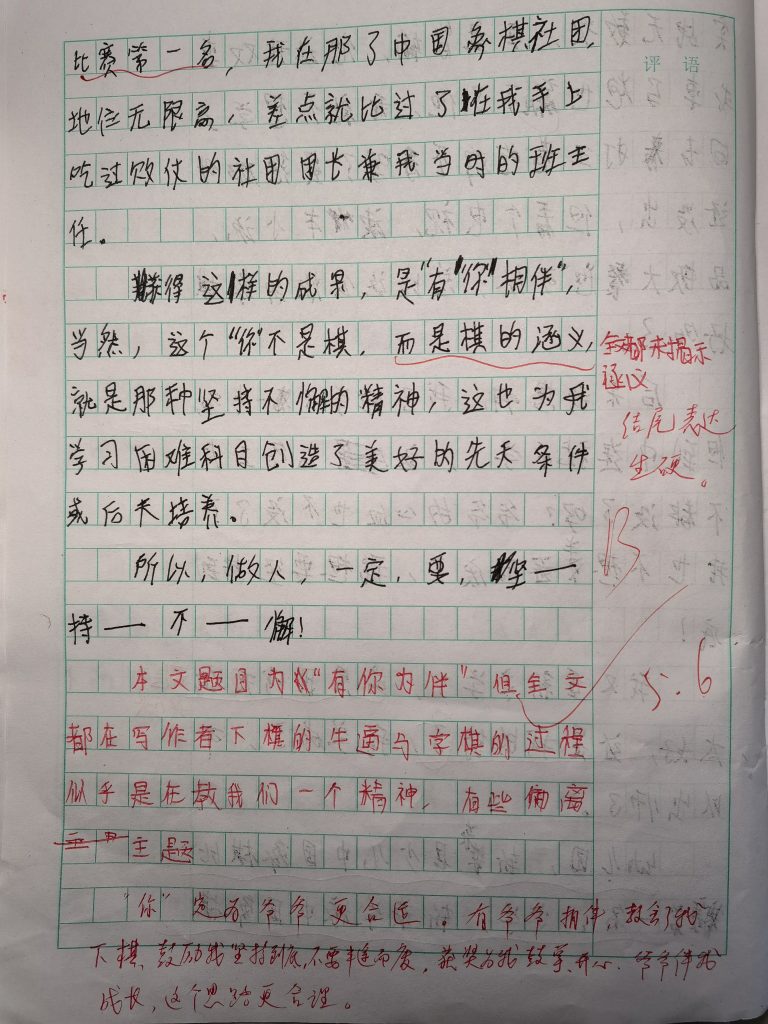 评 语
比赛第一名，我在那了中国象棋社团，
地位无限高，差点就比过了在我手上
吃过败仗的社团团长兼我当时的班主
任。
获得这样的成果，是“有‘你’相伴”，
当然，这个“你”不是棋，而是棋的涵义，
就是那种坚持不懈的精神，这也为我
学习困难科目创造了美好的先天条件
或后天培养。
所以，做人，一定，要，坚——
持——不——懈！
全文都未揭示
涵义
结尾表达
生硬。
B
5.6
本文题目为《“有你为伴”但全文
都在写作者下棋的牛逼与学棋的过程
似乎是在教我们一个精神，有些偏离
主题
“你”定为爷爷更合适。有爷爷相伴，教会了我
下棋、鼓励我坚持到底，不要半途而废，获奖为我鼓掌、开心、爷爷伴我
成长，这个思路更合理。